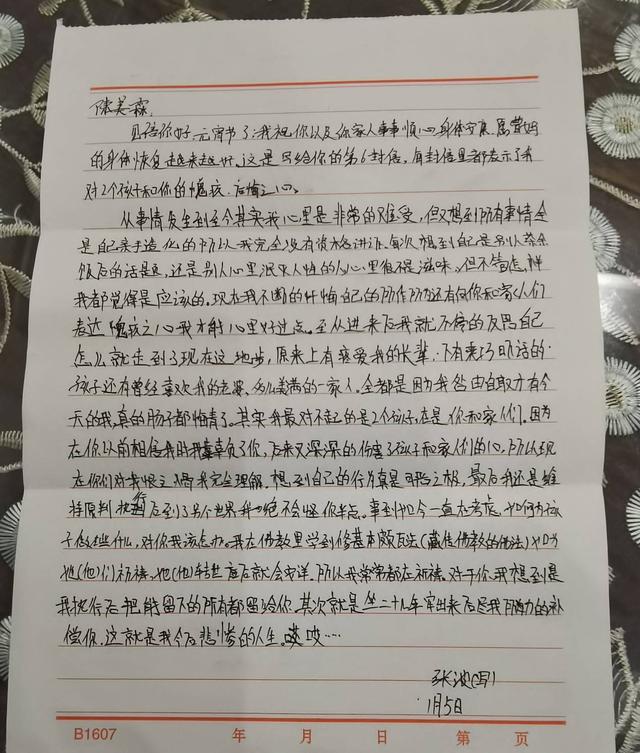 陈美霖,
见信你好,元宵节了,我祝你以及你家人事事顺心身体安康,愿
的身体恢复越来越好,这是写给你的第6封信,每封信里都表示了我
对2个孩子和你的愧疚,后悔之心。
从事情发生到至今其实我心里是非常的难受,但又想到所有事情全
是自己亲手造化的所以我完全没有资格讲诉。每次想到自己是别人茶余
饭后的话题,还是别人心里泯灭人性的人心里很不是滋味。但不管怎样
我都觉得是应该的。现在我不断的忏悔自己的所作所为还有向你和家人们
表达愧疚之心我才能心里好过点。至从进来后我就不停的反思自己
怎么就走到了现在这地步,原来上有疼爱我的长辈、下有乖巧听话的
孩子还有曾经喜欢我的老婆、多么美满的一家人。全都是因为我咎由自取才有今
天的我,真的肠子都悔青了。其实我最对不起的是2个孩子,在是你和家人们。因为
在你以前相信我时我辜负了你,后来又深深的伤害了孩子和家人们的心,所以现
在你们对我恨之入骨我完全理解,想到自己的行为真是可耻之极,最后我还是维
持原判执行后到了另个世界我也绝不会怪你半点。事到如今一直在考虑,如何为孩
子做些什么,对你我该怎办。我在佛教里学到修基本颇瓦法(藏传佛教的佛法)如为
他(她)们祈祷,他(她)转世度后就会安详,所以我常常都在祈祷。对于你,我想到是
我执行后把能留下的所有都留给你。其次就是坐二十几年牢出来后尽我所能力的补
偿你,这就是我今后悲惨的人生。哎哎…
张波(写)
1月5日
B1607 年 月 日 第 页